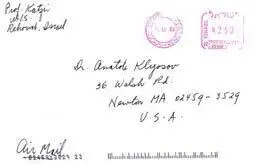 Prof Katzir
W/S
Rehovot, Israel
Dr. Anatole Klyosov
36 Walsh Rd.
Newton MA 02459-3529
U.S.A.
Air Mail